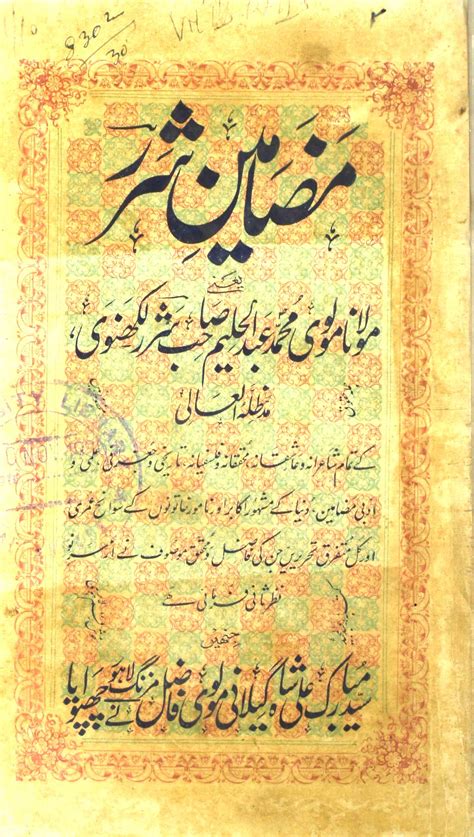 8302
30
مضامینِ شرر
یعنی
مولانا مولوی محمد عبدالحلیم صاحب شرر لکھنوی،
مدظلہ العالی
کے تمام شاعرانہ و عاشقانہ، محققانہ و فلسفیانہ، تاریخی و جغرافی، علمی و
ادبی مضامین، دنیا کے مشہور اکابر اور نامور خاتونوں کے سوانح عمری
اور کل متفرق تحریریں جن کی فاضل و محقق موصوف نے از سر نو
نظر ثانی فرمائی ہے
جنھیں
سید مبارک علی شاہ گیلانی مولوی فاضل مزنگ لاہور نے چھپوایا